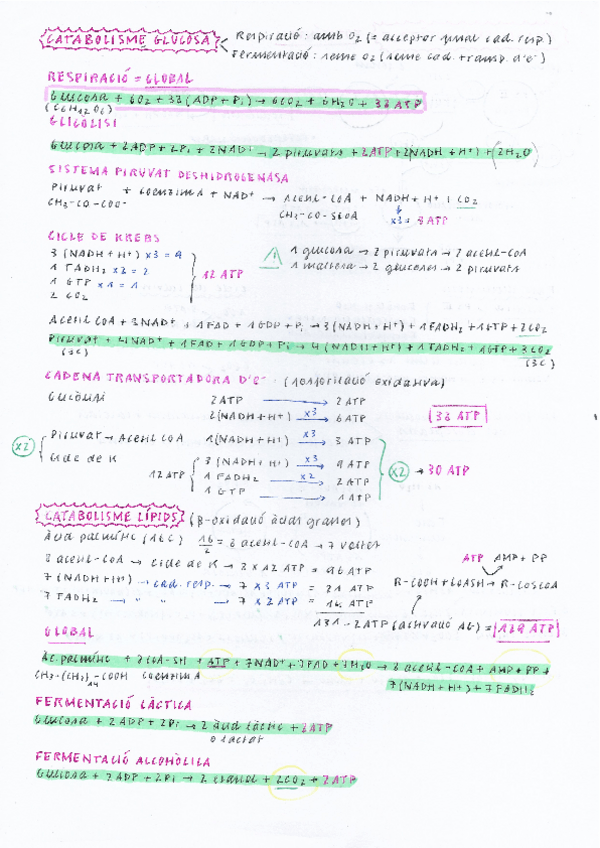 CATABOLISME GLUCOSA
Respiració: amb O2 (= acceptor final cad. resp.)
Fermentació: sense O2 (sense cad. transp. d'e-)
RESPIRACIÓ = GLOBAL
Glucosa + 6O2 + 38 (ADP + Pi) → 6CO2 + 6H2O + 38 ATP
(C6H12O6)
GLICÒLISI
Glucosa + 2ADP + 2Pi + 2NAD+ → 2 piruvats + 2ATP + 2(NADH + H+) + (2H2O)
SISTEMA PIRUVAT DESHIDROGENASA
Piruvat + coenzima + NAD+ → Acetil-CoA + NADH + H+ + CO2
CH3-CO-COO- CH3-CO-SCOA x3 = 3 ATP
CICLE DE KREBS
3 (NADH + H+) x3 = 9
1 FADH2 x2 = 2
1 GTP x1 = 1
2 CO2
12 ATP
1 glucosa → 2 piruvats → 2 acetil-CoA
1 maltosa → 2 glucoses → 2 piruvats
Acetil CoA + 3NAD+ + 1FAD + 1GDP + Pi → 3(NADH + H+) + 1FADH2 + 1GTP + 2CO2
Piruvat + 4NAD+ + 1FAD + 1GDP + Pi → 4(NADH + H+) + 1FADH2 + 1GTP + 3CO2
(3C) (3C)
CADENA TRANSPORTADORA D'E- (fosforilació oxidativa)
Glicòlisi 2ATP → 2 ATP
2(NADH + H+) x3 → 6 ATP
38 ATP
x2 Piruvat → Acetil CoA 1(NADH + H+) x3 → 3 ATP
Cicle de K 12 ATP 3(NADH + H+) x3 → 9 ATP
1 FADH2 x2 → 2ATP
1 GTP → 1 ATP
x2 → 30 ATP
CATABOLISME LÍPIDS (β-oxidació àcids grassos)
Àcid palmític (16C) 16/2 = 8 acetil-CoA → 7 voltes
8 acetil-CoA → Cicle de K → 8 x 12 ATP = 96 ATP
7 (NADH + H+) → cad. resp. → 7 x 3 ATP = 21 ATP
7 FADH2 → " " → 7 x 2 ATP = 14 ATP
ATP AMP + PP
R-COOH + CoASH → R-COSCoA
131 - 2ATP (activació AG) = 129 ATP
GLOBAL
Àc. palmític + 8CoA-SH + ATP + 7NAD+ + 7FAD + 7H2O → 8 acetil-CoA + AMP + PP +
CH3-(CH2)14-COOH coenzima A 7(NADH + H+) + 7FADH2
FERMENTACIÓ LÀCTICA
Glucosa + 2ADP + 2Pi → 2 àcid làctic + 2ATP
o lactat
FERMENTACIÓ ALCOHÒLICA
Glucosa + 2ADP + 2Pi → 2 etanol + 2CO2 + 2ATP